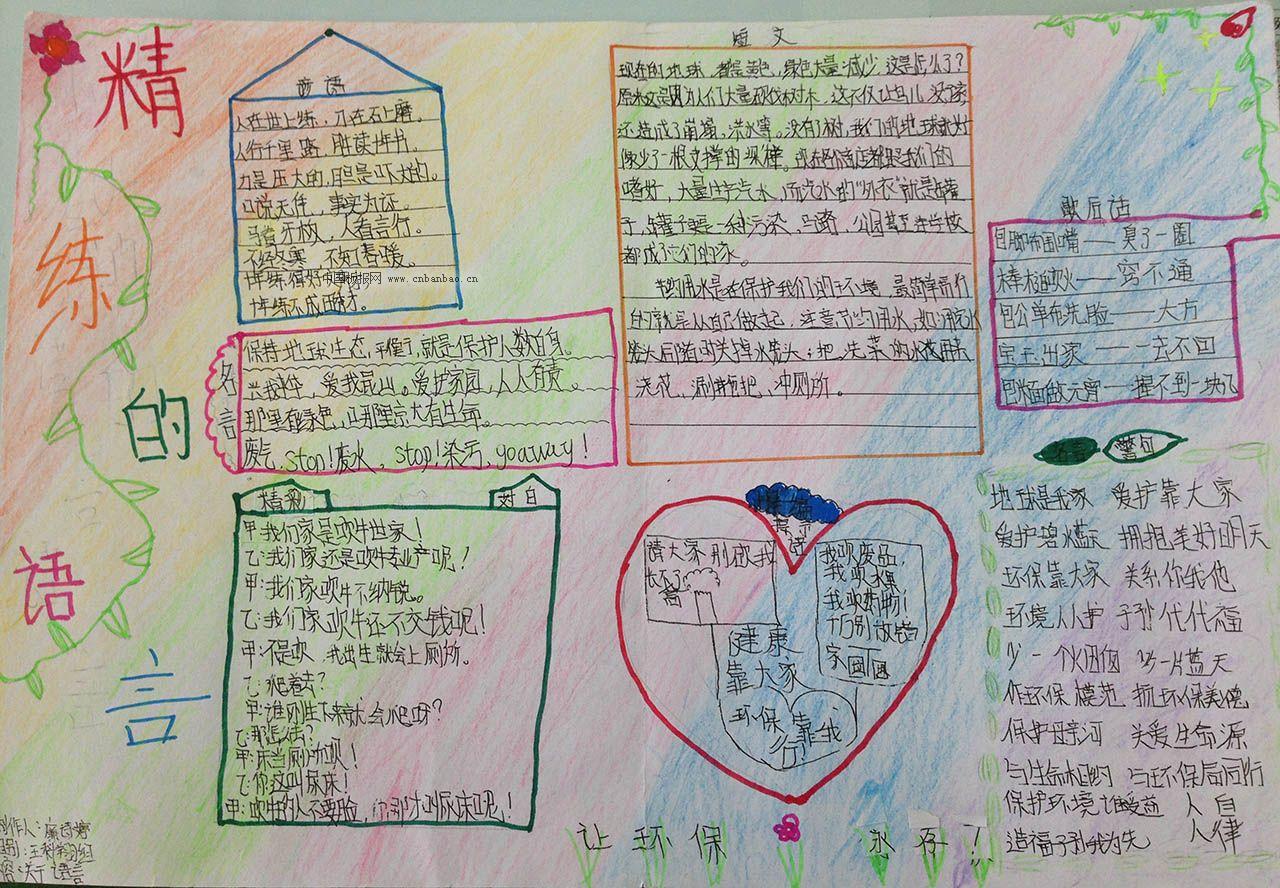 精练的语言
谚语
人在世上练，刀在石上磨。
人行千里路，胜读十年书。
力是压大的，胆是吓大的。
口说无凭，事实为证。
马看牙板，人看言行。
不经冬寒，不知春暖。
www.cnbanbao.cn
短文
现在的地球，都是黄色，绿色大量减少，这是怎么了？
原来这是因为人们大量砍伐树木，这不仅让鸟儿没了家，
还造成了崩塌，洪水等。没有了树，我们的地球就好
像少了一根支撑的
嗜好，大量生产汽水，而汽水的“外衣”就是
子，罐子更是一种污染，马路，公园甚至连学校
都成了它们的家。
节约用水是在保护我们的环境，最简单而行
的就是从自己做起，注意节约用水，如洗完水
龙头后随即关掉水龙头；把洗菜的水使用去
浇花，涮拖把，冲厕所。
歇后语
包脚布围嘴——臭了一圈
棒槌吹火——窍不通
包公单布洗脸——大方
宝玉出家——一去不回
包米面做元宵——捏不到一块儿
名言
保持地球生态平衡，就是保护人数自身。
兴我中华，爱我昆山。爱护家园，人人有责。
那里有绿色，让那里就有生命。
废气，stop!废水，stop!染污，goaway!
精彩对白
甲：我们家是吹牛世家！
乙：我们家还是吹牛起产呢！
甲：我们家吹牛不纳锐。
乙：我们家吹牛还不交钱呢！
甲：不是吹，我出生就会上厕所。
乙：爬着去？
甲：谁刚生下来就会爬呀？
乙：那怎么去？
甲：床当厕所呗！
乙：你这叫尿床！
甲：吹牛的人不要脸，你那才叫尿床呢！
请大家别砍我
长不高
我吸废品，
健康
靠大家
环保靠我
行
名言
警句
地球是我家 爱护靠大家
爱护碧水蓝天 拥抱美好明天
环保靠大家 关系你我他
环境人人护 子孙代代福
少一个火囱 多一片蓝天
作环保模范 抓环保美德
保护母亲河 关爱生命源
与生命相约 与环保局同行
保护环境 人人自律
造福子孙我为先
让环保永存！